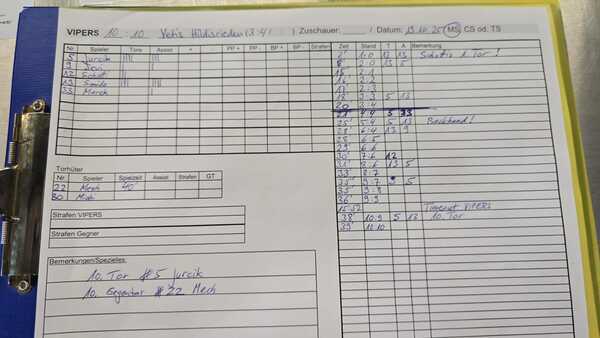 VIPERS 10 : 10 Yetis Hildisrieden (3:4) Zuschauer: / Datum: 19.10.25 MS CS od. TS
Nr. Spieler Tore Assist + - PP + PP - BP + BP - Strafen
5 Jurcik |||| |||
9 Jiori |
12 Schat
13 Smids |||| ||||
33 Merch |
Torhüter
Nr. Spieler Spielzeit Assist Strafen GT
22 Mech 40'
80 Mish
Strafen VIPERS
Strafen Gegner
Bemerkungen/Spezielles:
10. Tor #5 Jurcik
10. Gegentor #22 Mech
Zeit Stand T A Bemerkung
1:0 12 13 1. Tor!
8' 2:0 13 5
15' 2:1
16' 2:2
17' 2:3
18' 3:3 5 13
20' 3:4
21' 4:4 5 33
25' 5:4 5 13 Backhand!
28' 6:4 13 9
28' 6:5
29' 6:6
30' 7:6 12
31' 8:6 13 5
33' 8:7
35' 9:7 9 5
35' 9:8
36' 9:9
Timeout VIPERS
38' 10:9 5 13 10. Tor
39' 10:10